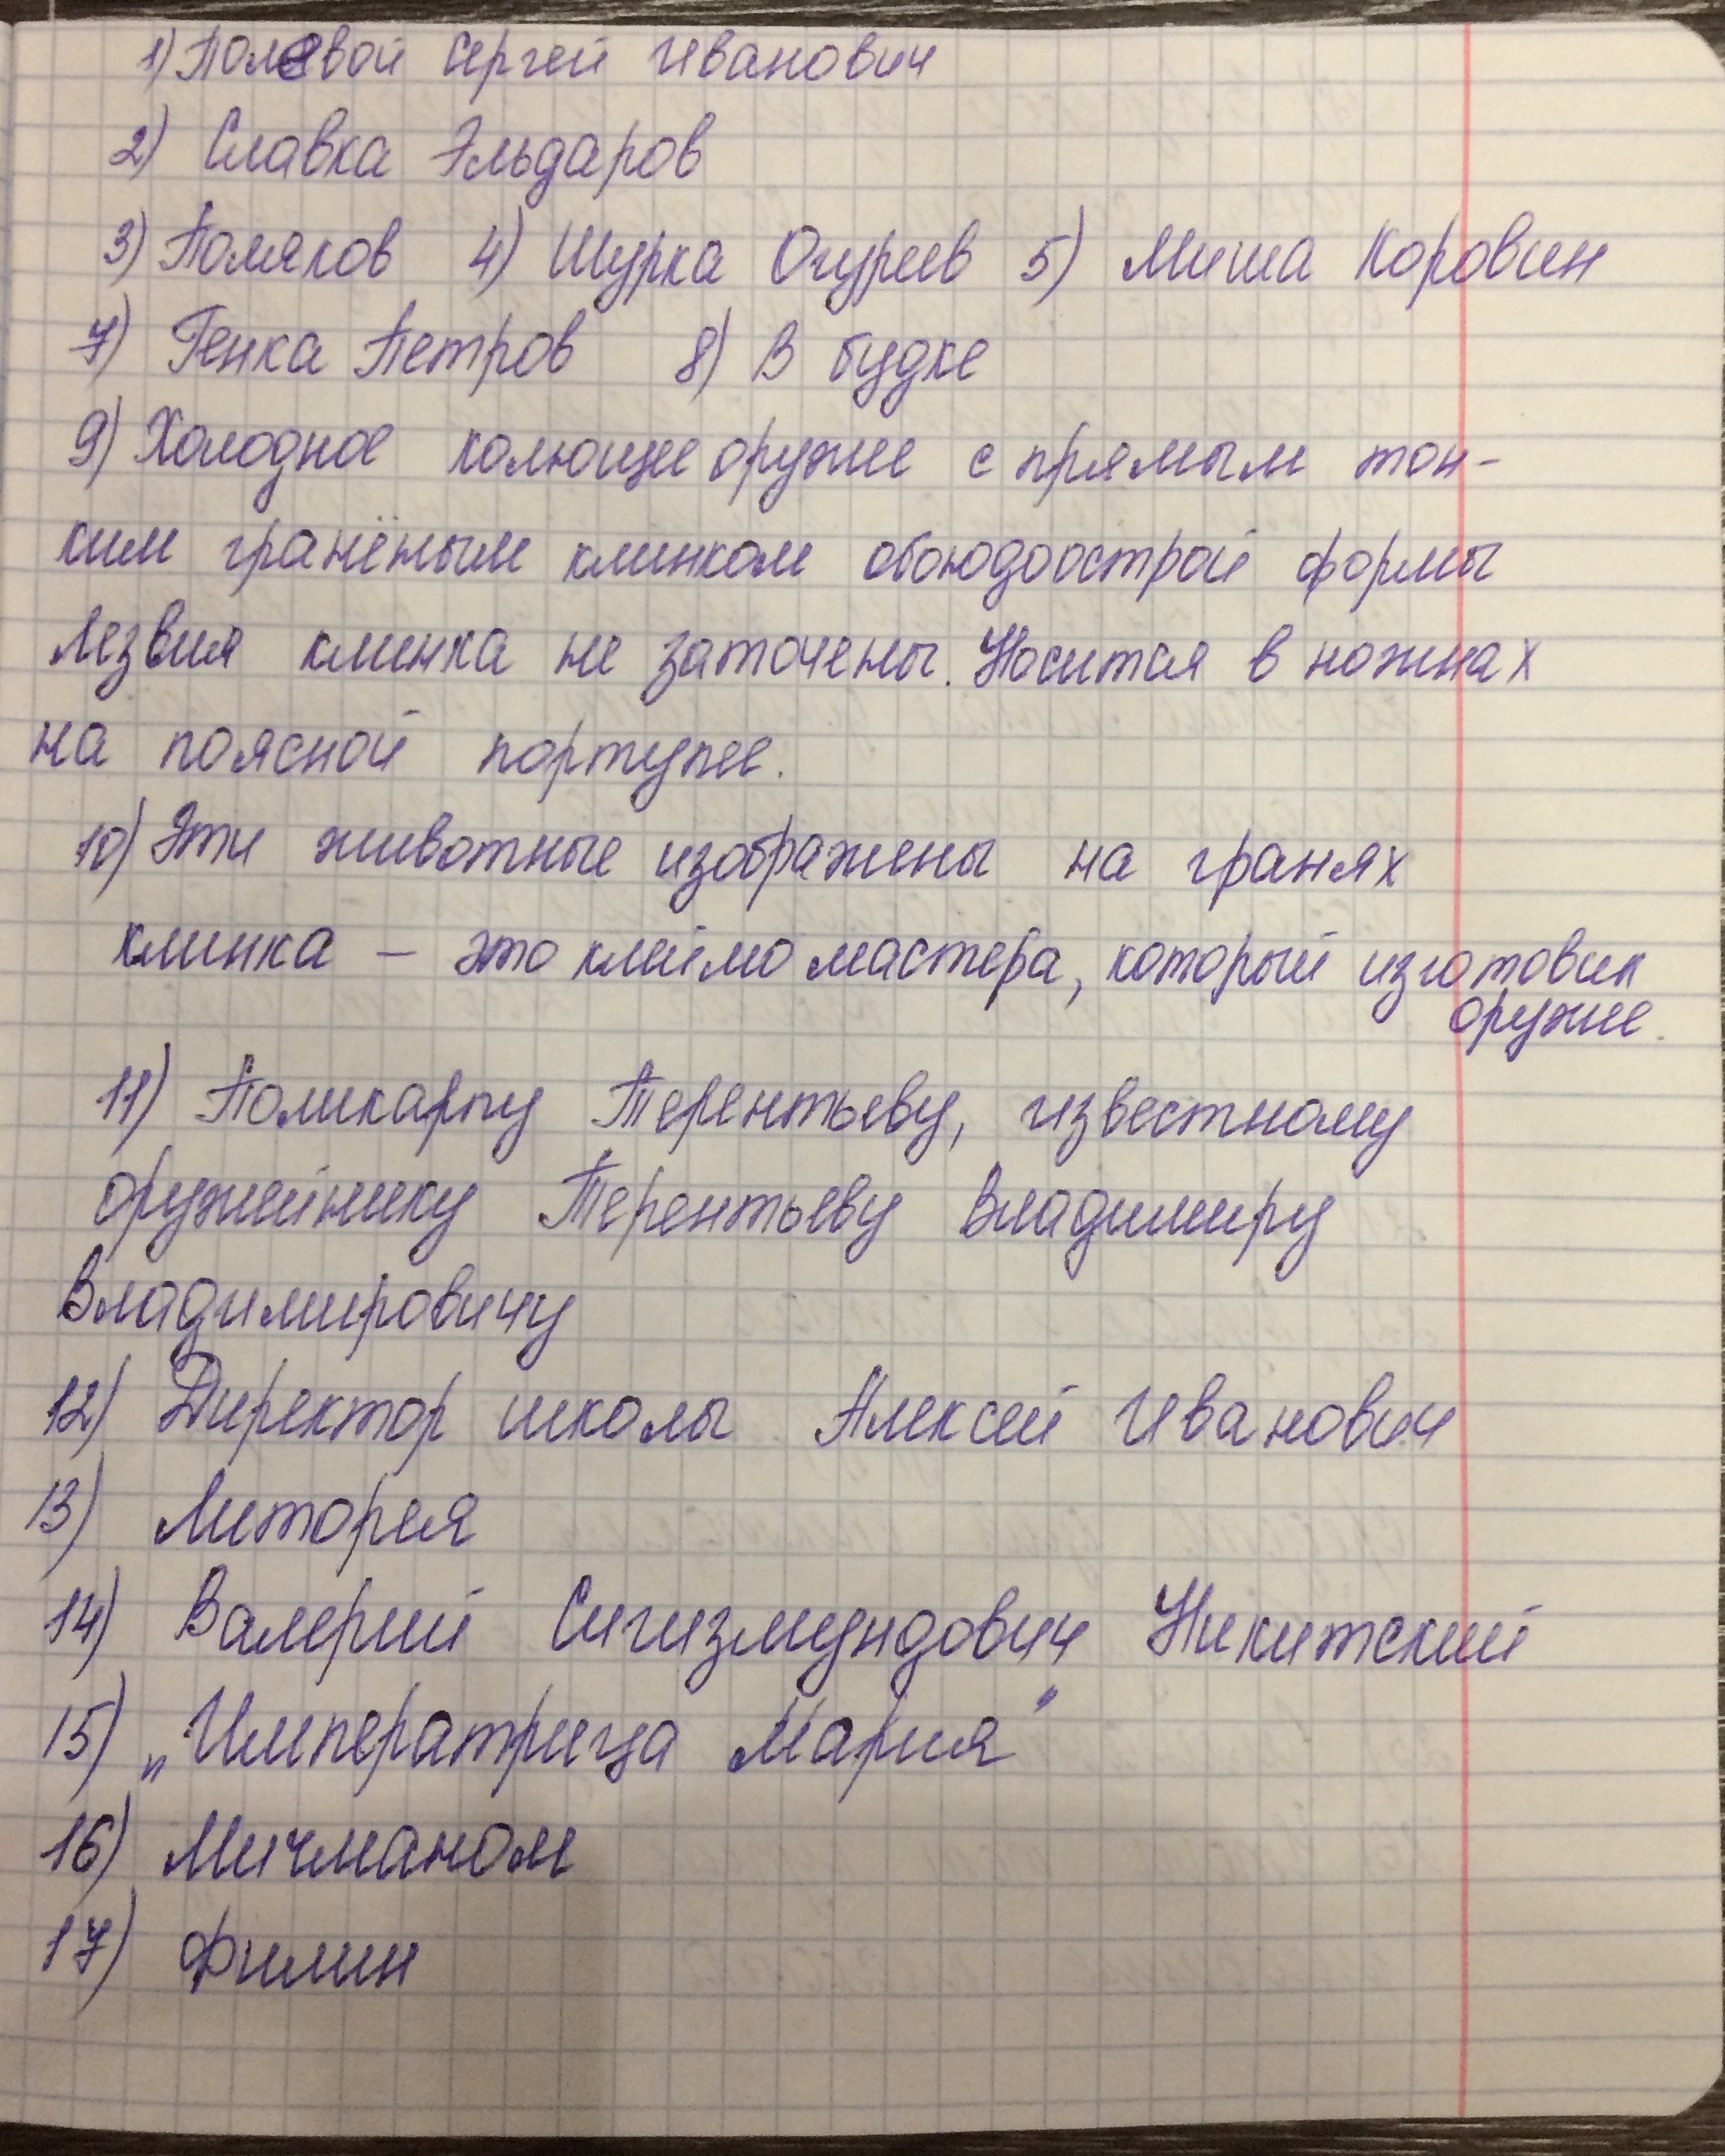 1) Полевой Сергей Иванович
2) Славка Эльдаров
3) Поляков 4) Шурка Огуреев 5) Миша Коровин
7) Генка Петров 8) В будке
9) Холодное колющее оружие с прямым тон-
ким гранёным клинком обоюдоострой формы
Лезвия клинка не заточены. Носится в ножнах
на поясной портупее.
10) Эти животные изображены на гранях
клинка – это клеймо мастера, который изготовил
оружие.
11) Поликарпу Терентьеву, известному
оружейнику Терентьеву Владимиру
Владимировичу
12) Директор школы Алексей Иванович
13) Литорея
14) Валерий Сигизмундович Никитский
15) „Императрица Мария"
16) Мичманом
17) Филин